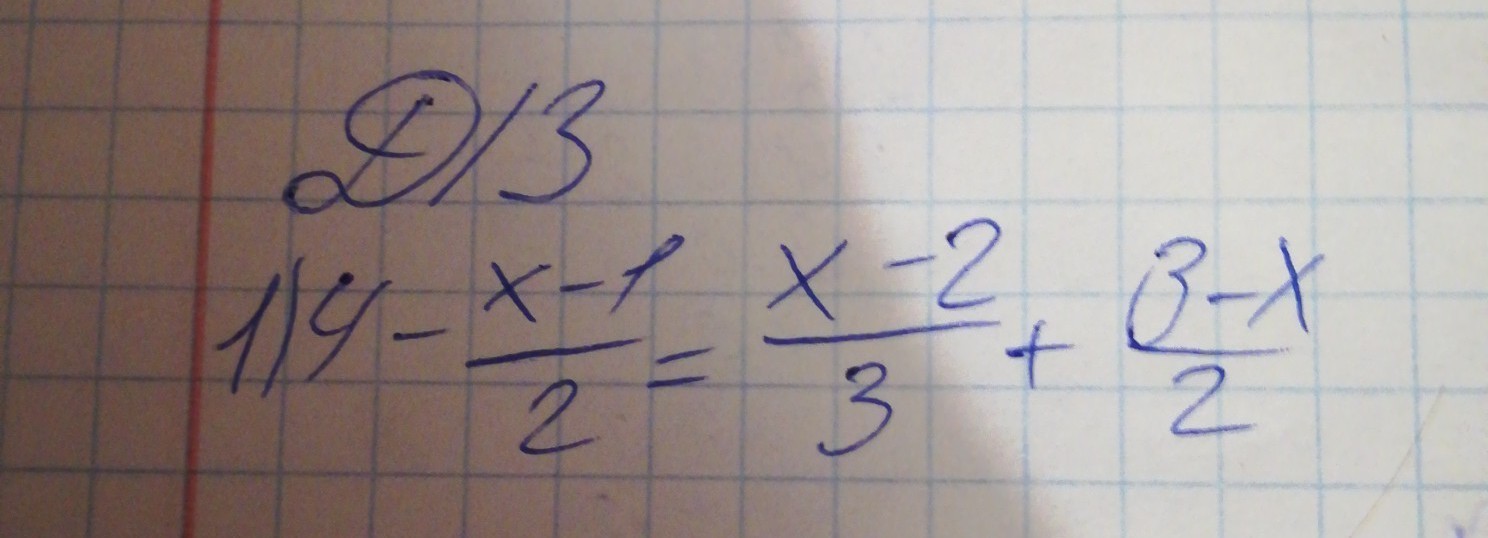 Д/З
1) 4 - \frac{x-1}{2} = \frac{x-2}{3} + \frac{3-x}{2}